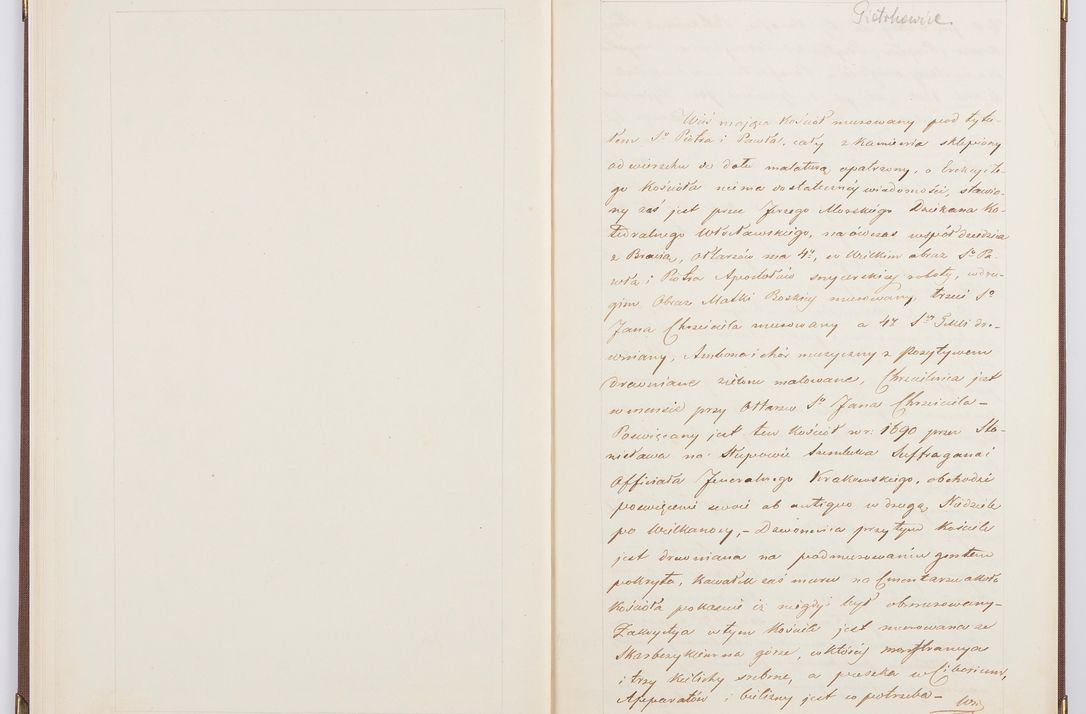 Piotrkowice.
Wieś mająca Kościół murowany pod tytu-
łem Sº Piotra i Pawła, cały z kamienia sklepiony
od wierzchu do dołu malaturą opatrzony, o Erekcyi te-
go Kościoła niema dostatecznéy wiadomości, stawio-
ny zaś jest przez Jerzego Morskiégo Dziekana Ka-
tedralnego Włocławskiego, na ówczas współ dziedzica
z Bracią, Ołtarzów ma 4ry, w Wielkim obraz Sº Pa-
wła i Piotra Apostołów snycerskiey roboty, w dru-
gim Obraz Matki Boskiey murowany, trzeci Sº
Jana Chrzciciela murowany a 4ty dre-
wniany, Ambona i chór muzyczny z Pozytywem
drewniane zielono malowane, Chrzcilnica jest
w murze przy Ołtarzu Sº Jana Chrzciciela –
Poswięcany jest ten Kościół w r: 1690 przez Sta-
nisława na Słupowie Szembeka Suffragana i
Officiała Jeneralnego Krakowskiego, obchodzi
poswięcenie swoie ab antiquo w drugą Niedziele
po Wielkanocy, – Dzwonnica przy tym Kościele
jest drewniana na podmurowaniu gontem
pokryta, kawałek zaś muru na Cmentarzu około
Kościoła pokazuie iż niegdyś był obmurowany –
Zakrystya w tym Kościele jest murowana ze
Skarbczykiem na górze, w któréy monstrancya
i trzy kielichy srebrne, a puszka w Ciborium,
Apparatów i bielizny jest co potrzeba –